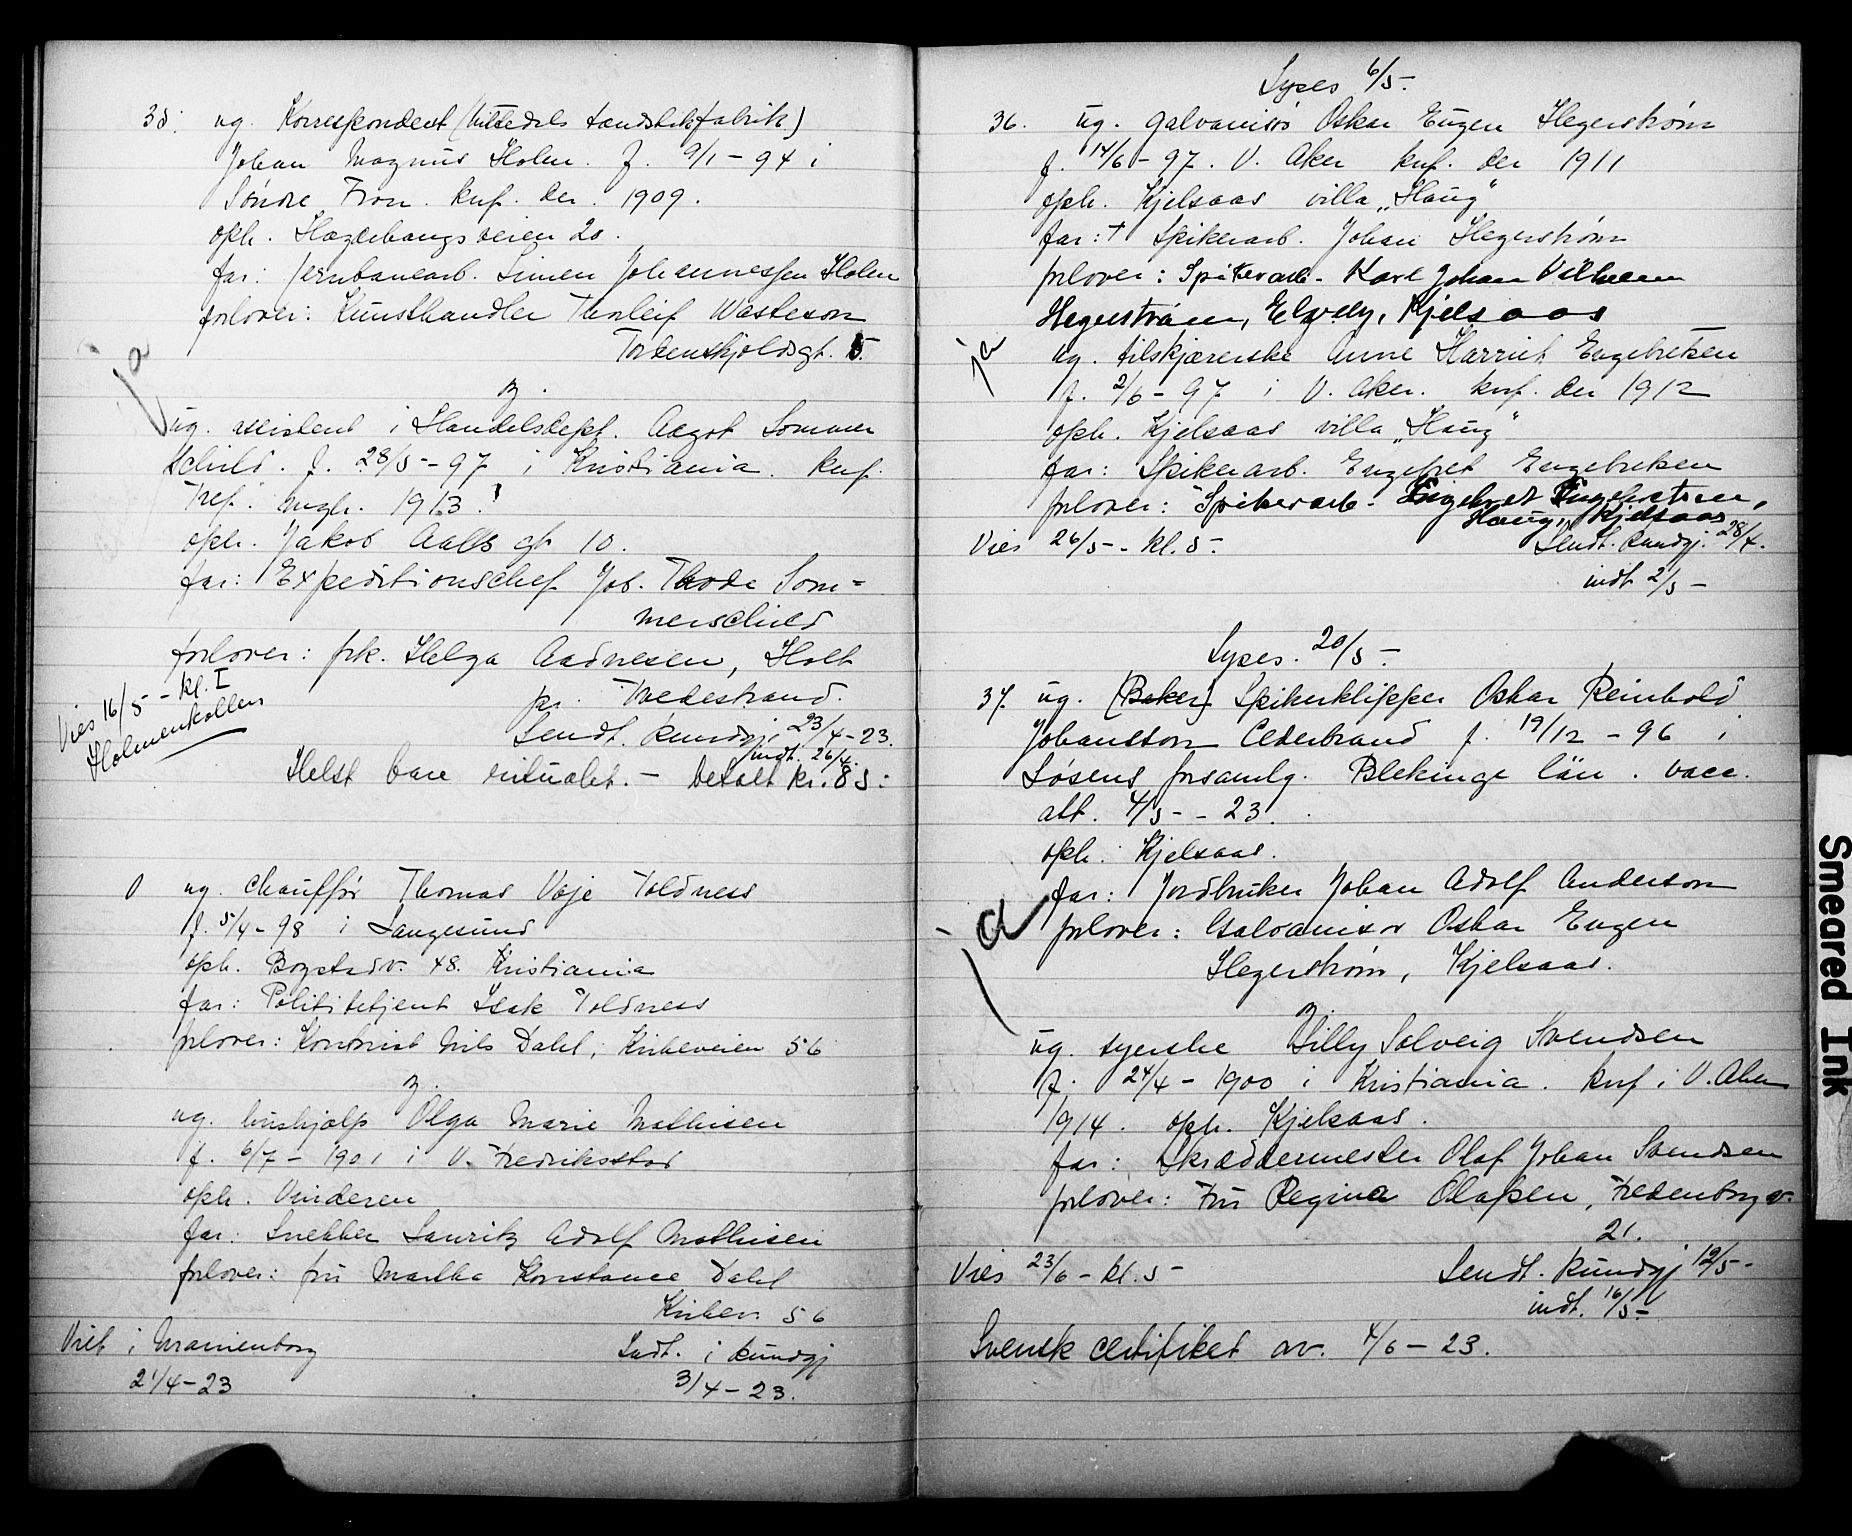 35. ug. Korrespondent (Nittedals tændstikfabrik)
Johan Magnus Holen. f. 9/1-94 i
Søndre Fron. knf. der. 1909.
oph. Hagerbangsveien 20.
far: jernbanearb. Simen Johannessen Holen
forlover: Kunsthandler Thorleif Wasteson
Tordenskjoldsgt. 5.
ja
&
ug. assistent i Handelsdept. Aagot Sommer
schild. f. 28/5-97 i Kristiania. knf.
Tref. mgh. 1913.
oph. Jakob Aalls gt 10.
far: Expeditionschef Joh. Thode Som=
merschild
forlover: frk. Helga Aadnesen, Holt
pr. Tvedestrand.
Vies 16/5- kl. 1
Holmenkollen
Sendt. kundgj. 23/4-23.
indt. 26/4.
Helst bare ritualet. - betalt kr. 85:
0 ug. chauffør Thomas Voje Toldness
f. 5/4-98 i Langesund
oph. Bogstadv. 48. Kristiania
far: Politibetjent Isak Toldness
forlover: Kontorist Nils Dahl, Kirkeveien 56
&
ug. hushjælp Olga Marie Mathisen
f. 6/7-1901 i V. Fredriksstad
oph. Vinderen
far: Snekker Lauritz Adolf Mathisen
forlover: fru Martha Konstance Dahl
Kirkev. 56
Viet i Uranienborg
21/4-23
Sndt. i kundgj
3/4-23.
Lyses 6/5-
36. ug. galvanisør Oskar Eugen Hegerstrøm
f. 14/6-97. V. Aker knf. der 1911
oph. Kjelsaas villa „Haug"
far: † Spikerarb. Johan Hegerstrøm
forlover: Spikerarb. Karl Johan Vilhelm
Hegerstrøm, Elvely, Kjelsaas
ja
ug. tilskjærerske Anne Harriet Engebretsen
f. 2/6-97 i V. Aker. knf. der 1912
oph. Kjelsaas villa „Haug"
far: Spikerarb. Engebret Engebretsen
forlover: Spikerarb. Engebret Engebretsen,
Haug, Kjelsaas
Vies 26/5- kl. 5-
Sendt. kundgj. 28/4.
indt 2/5-
Lyses. 20/5-
37. ug. (Baker) Spikerklipper Oskar Reinhold
Johansson Cederbrand f. 19/12-96 i
Løsens forsamlg. Blekinge län. vacc.
att. 4/5-23.
oph. Kjelsaas.
far: Jordbruker Johan Adolf Anderson
forlover: Galvanisør Oskar Eugen
Hegerstrøm, Kjelsaas.
ja
&
ug. syerske Lilly Solveig Svendsen
f. 24/4-1900 i Kristiania. knf i V. Aker
1914. oph. Kjelsaas.
far: Skræddermester Olaf Johan Svendsen
forlover: Fru Regina Olafsen, Fredenborgv.
21.
Vies 23/6- kl. 5-
Sendt. kundgj 12/5-
indt. 16/5-
Svensk certifiket av. 4/6-23.
Smeared Ink